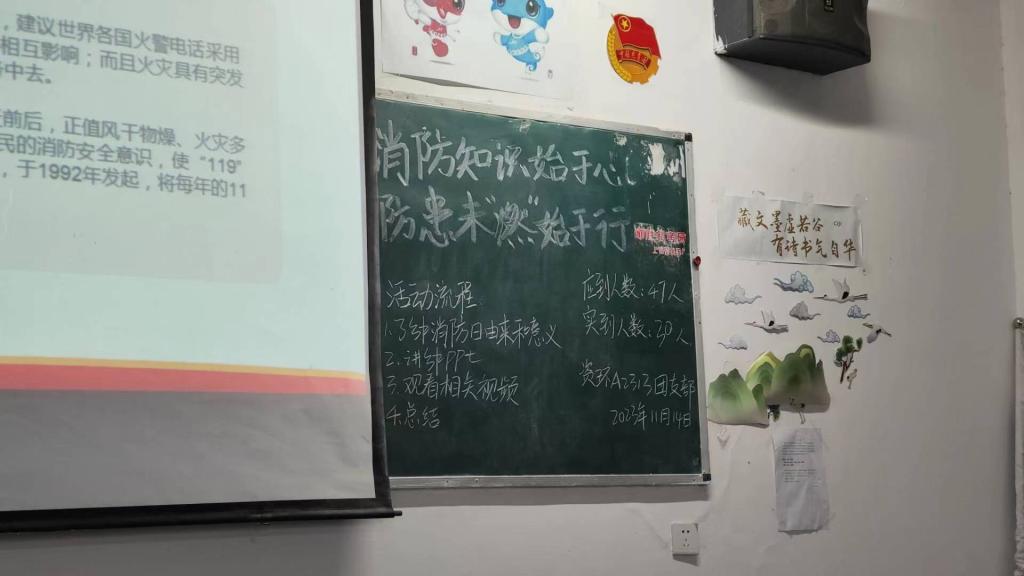 ，建议世界各国火警电话采用
相互影响；而且火灾具有突发
中去。
前后，正值风干物燥、火灾多
民的消防安全意识，使“119”
，于1992年发起，将每年的11
消防知识始于心
防患未"燃"始于行
活动流程
1.了解消防日由来和意义
2.讲解PPT
3.观看相关视频
4.总结
应到人数：47人
实到人数：30人
A2313团支部
2023年11月14日
藏文墨虚若谷
有诗书气自华